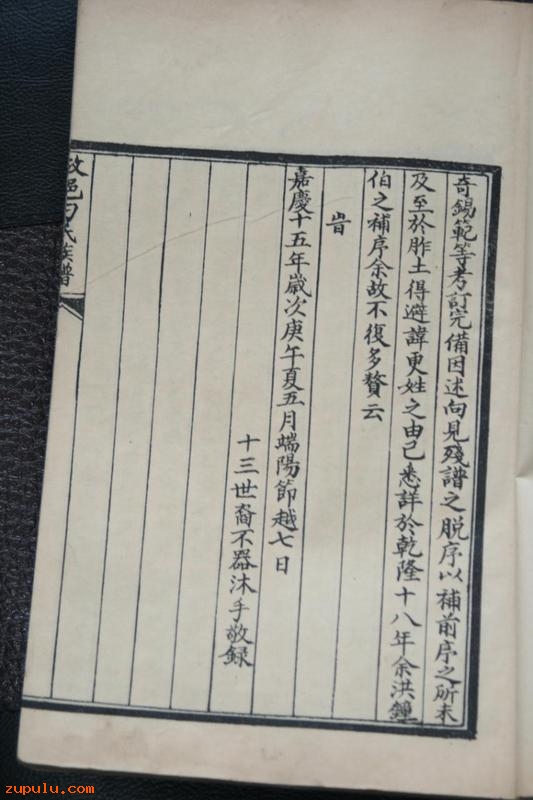 奇錫範等考訂完備因述向見殘譜之脱序以補前序之所未
及至於胙土得避諱更姓之由已悉詳於乾隆十八年余洪鐘
伯之補序余故不復多贅云
旹
嘉慶十五年歲次庚午夏五月端陽節越七日
十三世裔不器沐手敬録
邑氏族譜
zupulu.com